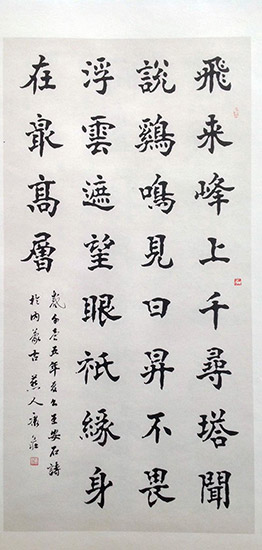 飛来峰上千尋塔聞
說鷄鳴見日昇不畏
浮雲遮望眼祇緣身
在最高層
五年夏 王安石詩
於内蒙古 燕人